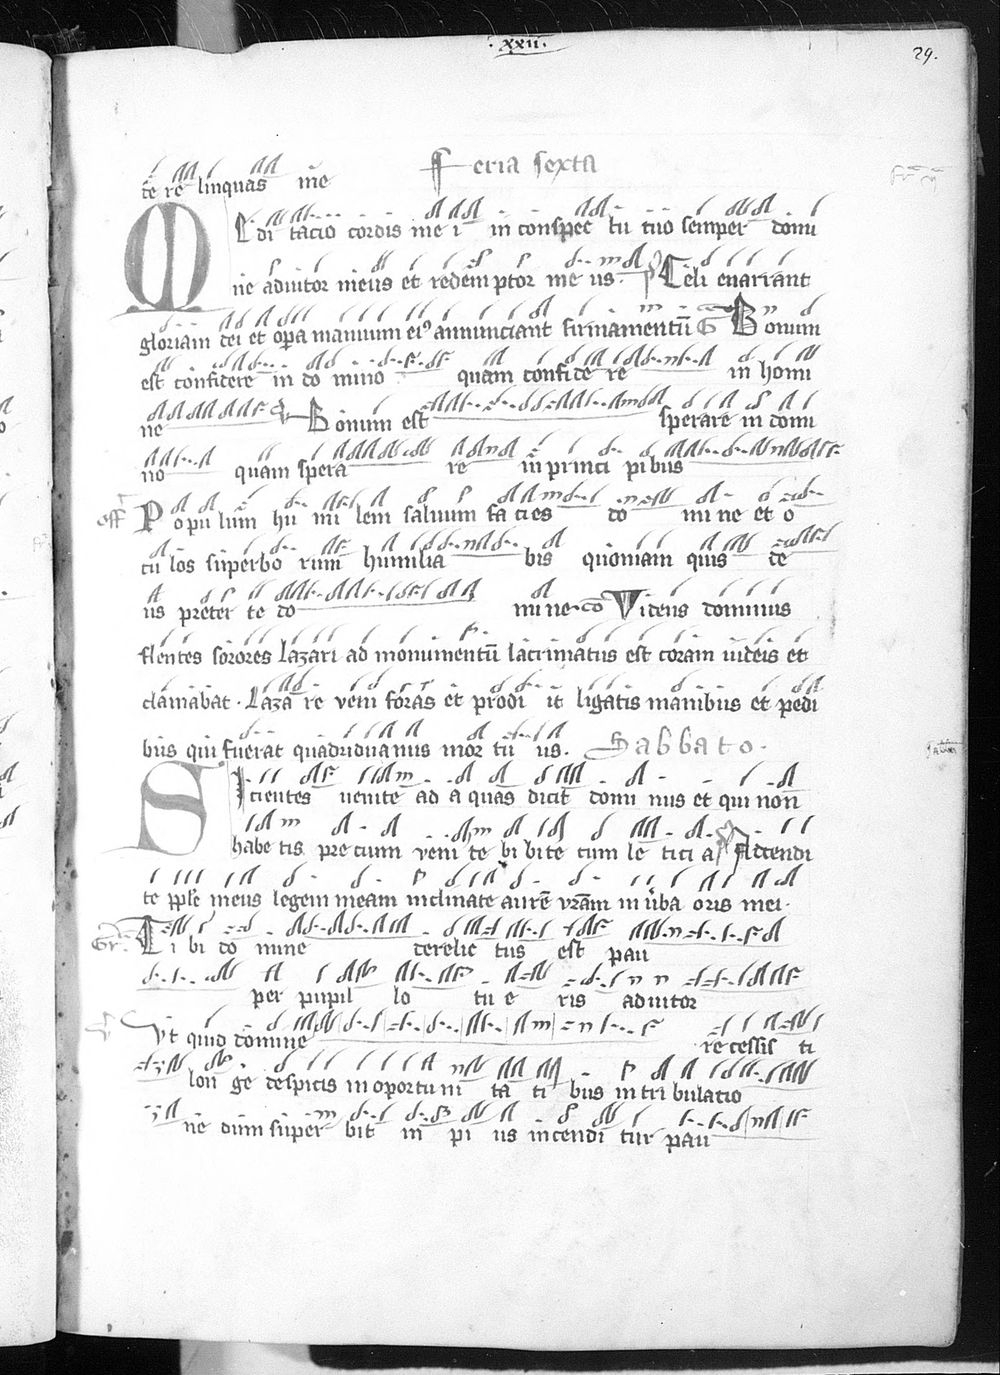 ·xxii·
29.
te re linquas me Feria sexta
MEdi tacio cordis me i in conspec tu tuo semper domi
ne adiutor meus et redemptor me us. ps Celi enarrant
gloriam dei et opa manuum ei9 annunciant firmamentū G Bonum
est confidere in do mino quam confide re in homi
ne V Bonum est sperare in domi
no quam spera re in princi pibus
off Populum hu mi lem saluum fa cies do mi ne et o
cu los superbo rum humilia bis quoniam quis de
us preter te do mi ne co Videns dominus
flentes sorores Lazari ad monumentū lacrimatus est coram iudeis et
clamabat · Laza re veni foras et prodi it ligatis manibus et pedi
bus qui fuerat quadriduanus mor tu us. Sabbato·
Sicientes uenite ad a quas dicit domi nus et qui non
habe tis precium veni te bi bite cum le tici a ps Adtendi
te pple meus legem meam inclinate aurē vrām in ūba oris mei·
Gr. Ti bi do mine derelic tus est pau
per pupil lo tu e ris adiutor
V Vt quid domine re cessis ti
lon ge despicis in oportuni ta ti bus in tri bulacio
ne dum super bit in pi us incendi tur pau